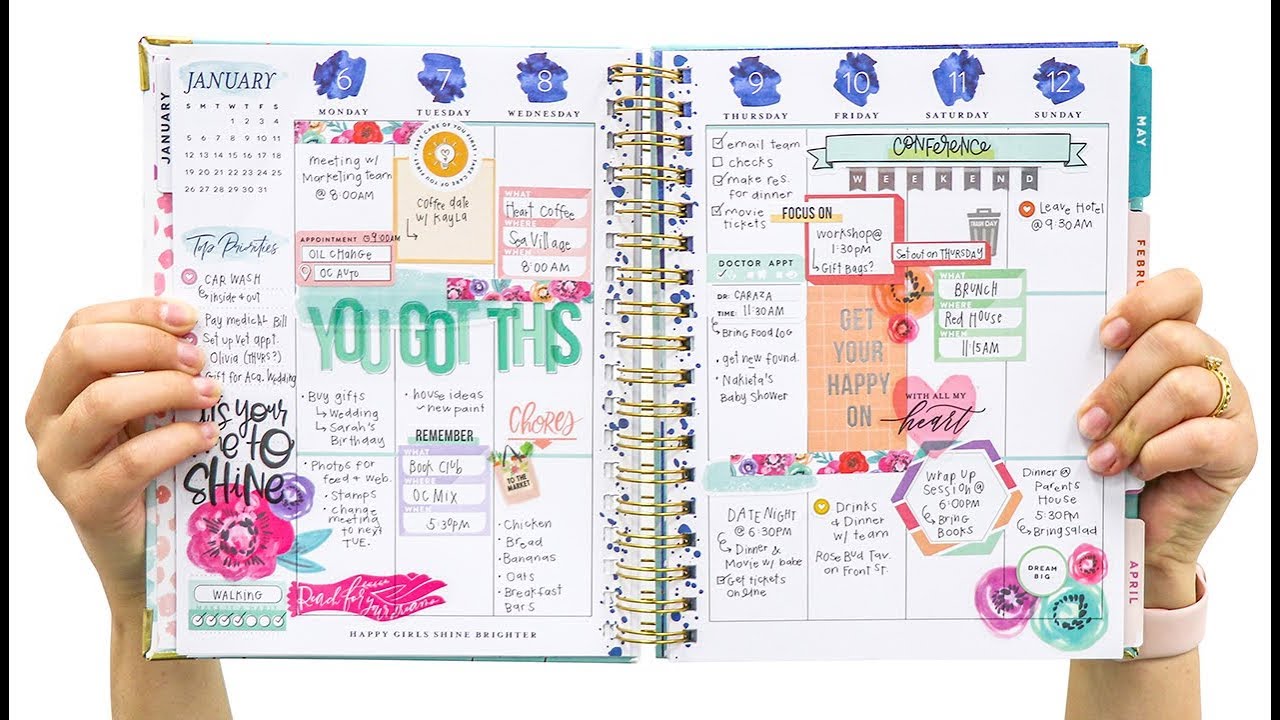 JANUARY
S M T W T F S
1 2 3 4
5 6 7 8 9 10 11
12 13 14 15 16 17 18
19 20 21 22 23 24 25
26 27 28 29 30 31
JANUARY
Top Priorities
CAR WASH
Inside + out
Pay medical Bill
Set up Vet appt.
Olivia (THURS?)
Gift for Aca. Wedding
SHINE
WALKING
6
MONDAY
meeting w/
Marketing team
@ 8:00AM
APPOINTMENT @9:00AM
OIL CHANGE
OC AUTO
YOU GOT THIS
Buy gifts
Wedding
Sarah's
Birthday
Photos for
feed + web.
stamps
change
meeting
to next
TUE.
7
TUESDAY
TAKE CARE OF YOU FIRST
coffee date
w/ Kayla
house ideas
new paint
REMEMBER
WHAT
Book Club
WHERE
OC MIX
WHEN
5:30PM
Reach for
your dreams
8
WEDNESDAY
WHAT
Heart Coffee
WHERE
Sea Village
WHEN
8:00AM
CHORES
TO THE
MARKET
Chicken
Bread
Bananas
Oats
Breakfast
Bars
HAPPY GIRLS SHINE BRIGHTER
9
THURSDAY
email team
checks
make res.
for dinner
movie
tickets
DOCTOR APPT
DR: CARAZA
TIME: 11:30AM
Bring Food Log
get new found.
Nakieta's
Baby Shower
DATE NIGHT
@ 6:30PM
Dinner &
Movie w/ babe
Get tickets
online
10
FRIDAY
CONFERENCE
WEEKEND
FOCUS ON
workshop@
1:30PM
Gift Bags?
GET
YOUR
HAPPY
ON
Drinks
& Dinner
w/ team
Rose Bud Tav.
on Front St.
11
SATURDAY
TRASH DAY
Set out on THURSDAY
WHAT
BRUNCH
WHERE
Red House
WHEN
11:15AM
WITH ALL MY
heart
Wrap Up
Session @
6:00PM
Bring
Books
12
SUNDAY
Leave Hotel
@ 9:30AM
Dinner @
Parents
House
5:30PM
Bring salad
DREAM
BIG
MAY
APRIL